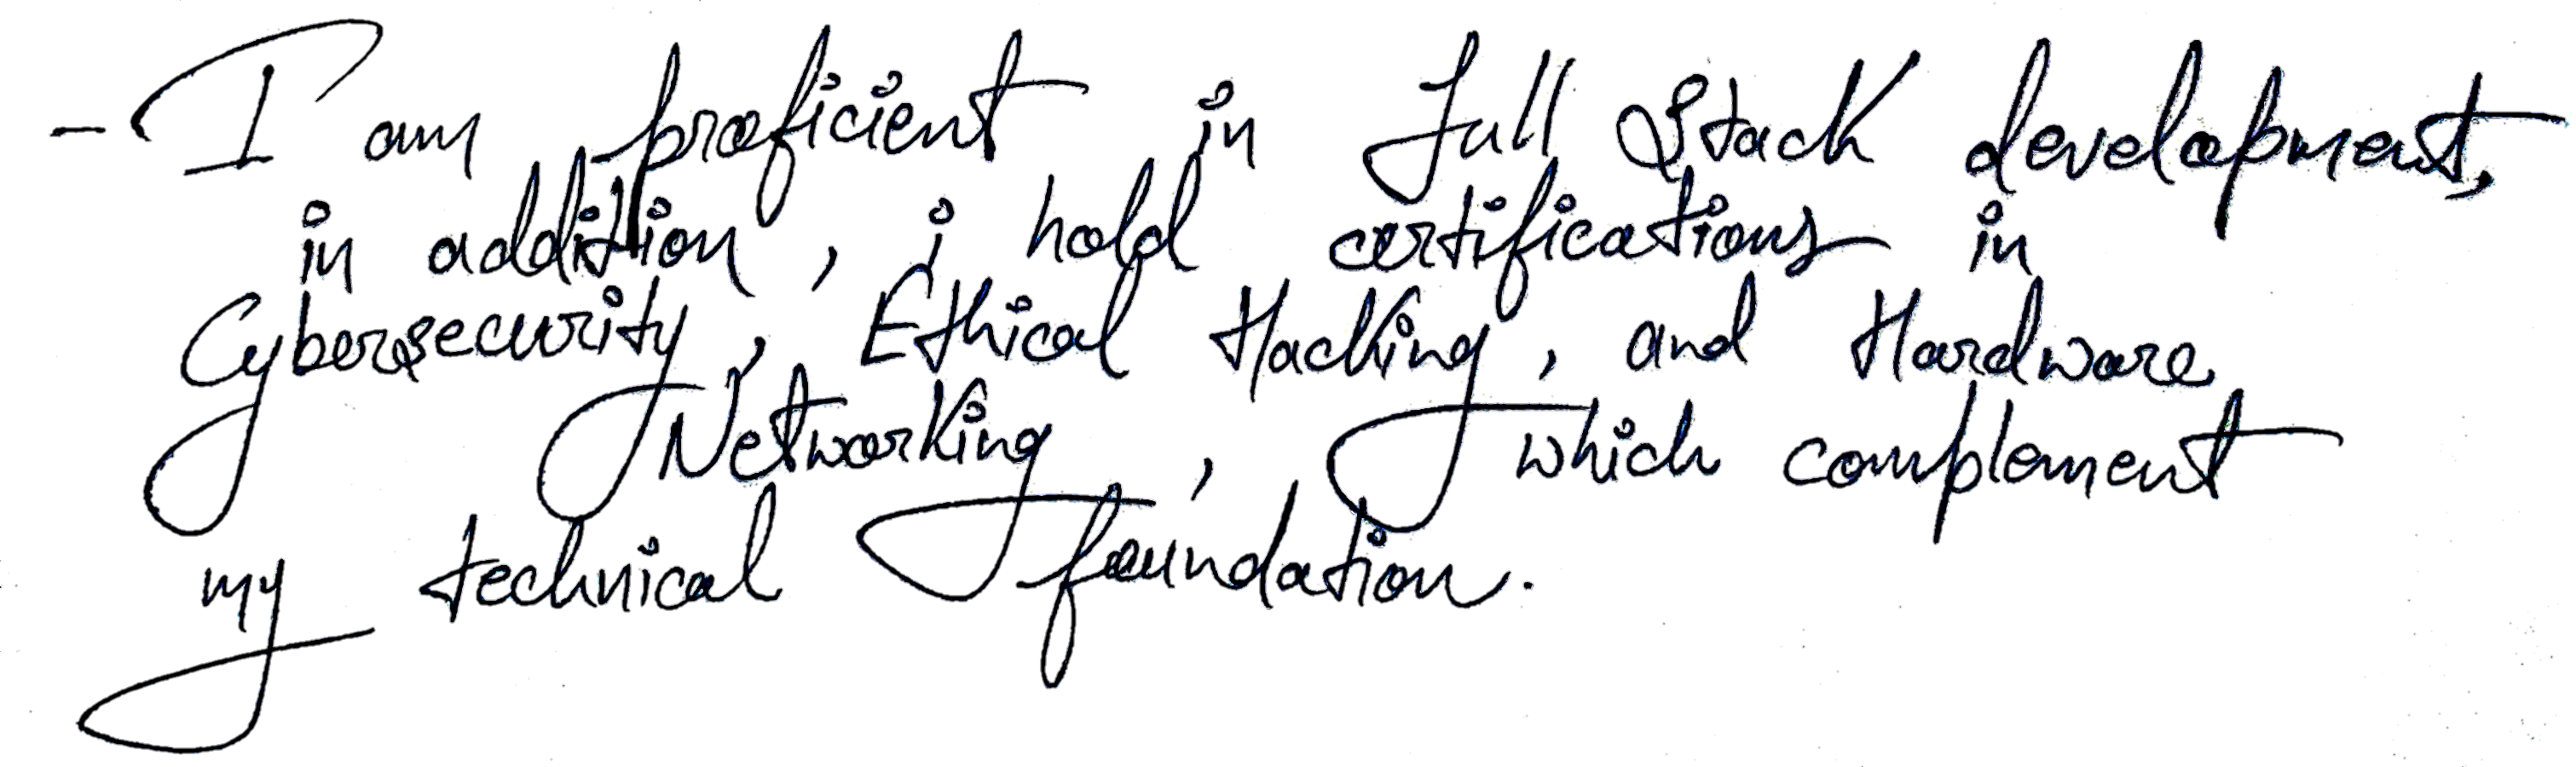 - I am proficient in full Stack development,
in addition, i hold certifications in
Cybersecurity, Ethical Hacking, and Hardware
Networking, which complement
my technical foundation.